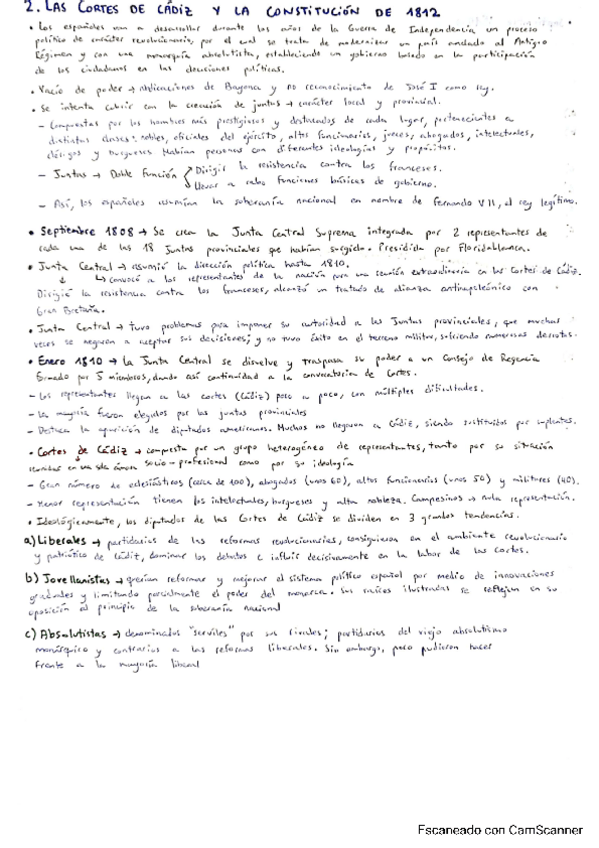 2. LAS CORTES DE CÁDIZ Y LA CONSTITUCIÓN DE 1812
• Los españoles van a desarrollar durante los años de la Guerra de Independencia un proceso
político de carácter revolucionario, por el cual se trata de modernizar un país anclado al Antiguo
Régimen y con una monarquía absolutista, estableciendo un gobierno basado en la participación
de los ciudadanos en las decisiones políticas.
• Vacío de poder → abdicaciones de Bayona y no reconocimiento de José I como rey.
• Se intenta cubrir con la creación de juntas → carácter local y provincial.
- Compuestas por los hombres más prestigiosos y destacados de cada lugar, pertenecientes a
distintas clases: nobles, oficiales del ejército, altos funcionarios, jueces, abogados, intelectuales,
clérigos y burgueses. Habían personas con diferentes ideologías y propósitos.
- Juntas → Doble función Dirigir la resistencia contra los franceses.
Llevar a cabo funciones básicas de gobierno.
- Así, los españoles asumían la soberanía nacional en nombre de Fernando VII, el rey legítimo.
• Septiembre 1808 → Se crea la Junta Central Suprema integrada por 2 representantes de
cada una de las 18 Juntas provinciales que habían surgido. Presidida por Floridablanca.
• Junta Central → asumió la dirección política hasta 1810.
↳ convocó a los representantes de la nación para una reunión extraordinaria en las Cortes de Cádiz.
Dirigió la resistencia contra los franceses, alcanzó un tratado de alianza antinapoleónico con
Gran Bretaña.
• Junta Central → tuvo problemas para imponer su autoridad a las Juntas provinciales, que muchas
veces se negaron a aceptar sus decisiones; y no tuvo éxito en el terreno militar, sufriendo numerosas derrotas.
• Enero 1810 → la Junta Central se disuelve y traspasa su poder a un Consejo de Regencia
formado por 5 miembros, dando así continuidad a la convocatoria de Cortes.
- Los representantes llegan a las cortes (Cádiz) poco a poco, con múltiples dificultades.
- La mayoría fueron elegidos por las juntas provinciales
- Destaca la aparición de diputados americanos. Muchos no llegaron a Cádiz, siendo sustituidos por suplentes.
• Cortes de Cádiz → compuesta por un grupo heterogéneo de representantes, tanto por su situación
reunidas en una sola cámara socio-profesional como por su ideología
- Gran número de eclesiásticos (cerca de 100), abogados (unos 60), altos funcionarios (unos 50) y militares (40).
- Menor representación tienen los intelectuales, burgueses y alta nobleza. Campesinos → nula representación.
• Ideológicamente, los diputados de las Cortes de Cádiz se dividen en 3 grandes tendencias.
a) Liberales → partidarios de las reformas revolucionarias, consiguieron en el ambiente revolucionario
y patriótico de Cádiz, dominar los debates e influir decisivamente en la labor de las cortes.
b) Jovellanistas → querían reformar y mejorar el sistema político español por medio de innovaciones
graduales y limitando parcialmente el poder del monarca. Sus raíces ilustradas se reflejan en su
oposición al principio de la soberanía nacional
c) Absolutistas → denominados "serviles" por sus rivales; partidarios del viejo absolutismo
monárquico y contrarios a las reformas liberales. Sin embargo, poco pudieron hacer
frente a la mayoría liberal
Escaneado con CamScanner